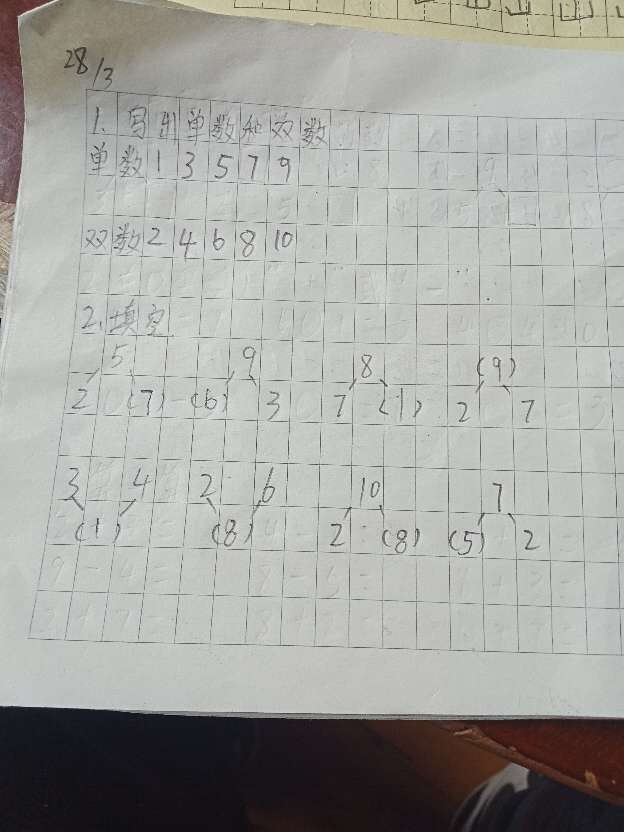 28/3
1. 写出单数和双数
单数 1 3 5 7 9
双数 2 4 6 8 10
2. 填空
5 9 8 (9)
2 (7) (6) 3 7 (1) 2 7
3 4 2 6 10 7
(1) (8) 2 (8) (5) 2